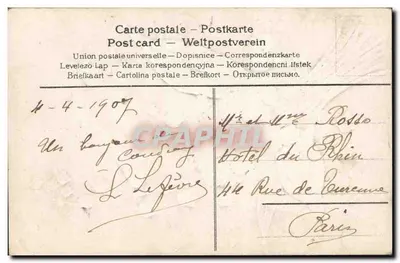 Carte postale — Postkarte
Post card — Weltpostverein
Union postale universelle – Dopisnice – Correspondenzkarte
Levelezö-Lap – Karta korespondencyjna – Korespondencni listek
Briefkaart – Cartolina postale – Brefkort – Открытое письмо.
4-4-1907
Un bonjour de
L Lefèvre
Mr et Mme Rosso
Hotel du Rhin
44 Rue de Turenne
Paris